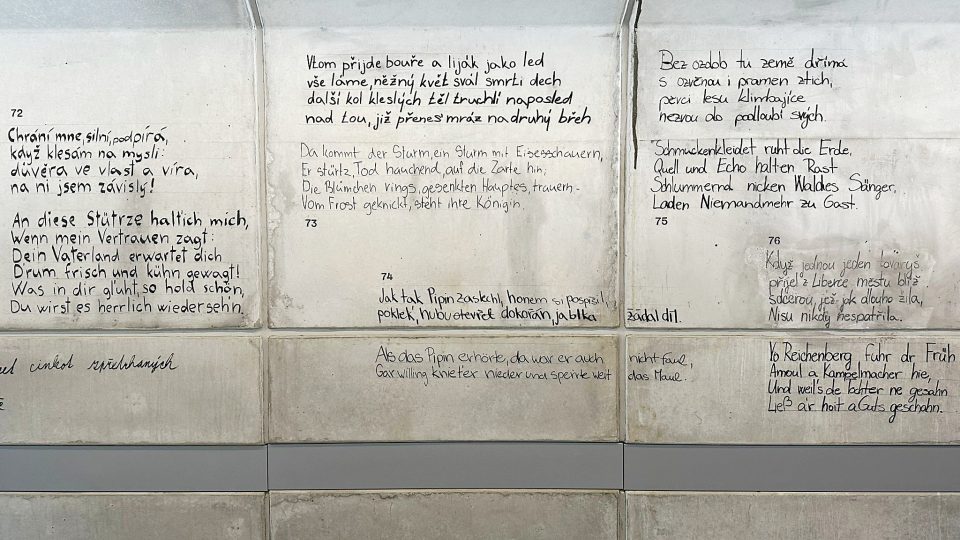 72
Chrání mne, sílní, podpírá,
když klesám na mysli:
důvěra ve vlast a víra,
na ní jsem závislý!
An diese Stütze halt ich mich,
Wenn mein Vertrauen zagt:
Dein Vaterland erwartet dich
D'rum frisch und kühn gewagt!
Was in dir glüht, so hold schön,
Du wirst es herrlich wiederseh'n.
cinkot
Vtom přijde bouře a liják jako led
vše láme, něžný květ svál smrti dech
další kol kleslých těl truchlí naposled
nad tou, již přenes' mráz na druhý břeh
Da kommt der Sturm, ein Sturm mit Eisesschauern,
Er stürtz, Tod hauchend, auf die Zarte hin;
Die Blümchen rings, gesenkten Hauptes, trauern -
Vom Frost geknickt, steht ihre Königin.
73
74
Jak tak Pipin zaslechl, honem si pospíšil,
poklek, hubu otevřek dokořán, jablka žádal díl.
Als das Pipin erhörte, da war er auch nicht faul,
Gar willing knieter nieder und sperrte weit das Maul.
Bez ozdob tu země dřímá
s ozvěnou i pramen ztich,
pěvci lesu klimbajíce
nezvou do podloubí svých.
Schmuckenkleidet ruht die Erde,
Quell und Echo halten Rast
Schlummernd nicken Waldes Sänger,
Laden Niemandmehr zu Gast.
75
76
Když jednou jeden tovaryš
přijel z Liberce městu blíž
sdcerou, jež jak dlouho žila,
Nisu nikdy nespatřila.
Yo Reichenberg fuhr dr Früh
Amoul a Kampelmacher hie,
Und weil's de tochter ne gesahn
Ließ ar hoit a Guts geschahn.